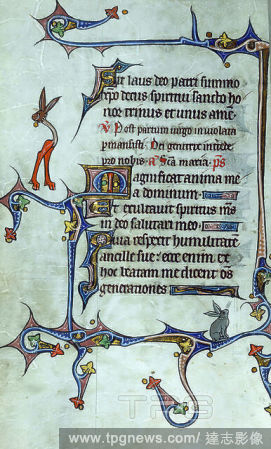 Sit laus deo patri summo
xpo decus spiritui sancto ho
nor trinus et unus amen
V Post partum virgo inviolata
permansisti Dei genitrix intercede
pro nobis a Sca maria ps
Magnificat anima me
a dominum
Et exultavit spiritus ms
in deo salutari meo
Quia respexit humilitatem
ancille sue ecce enim ex
hoc beatam me dicent oes
generationes
TPG
www.tpgnews.com/ 達志影像